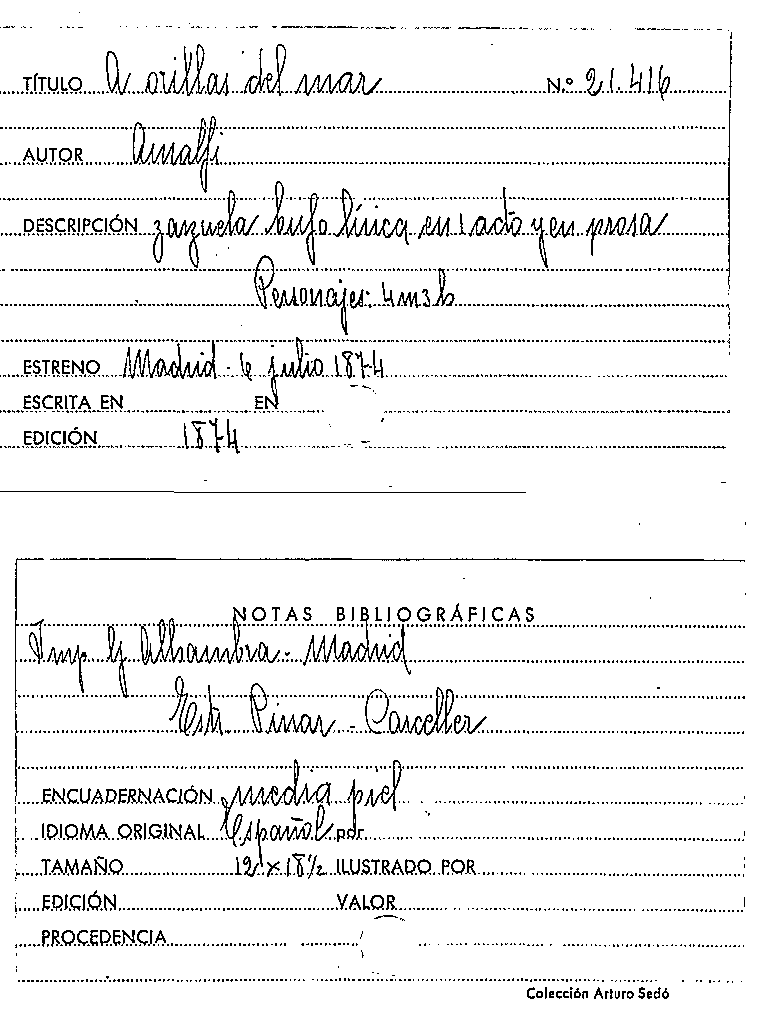 TÍTULO A orillas del mar N.º 21.416
AUTOR Amalfi
DESCRIPCIÓN zarzuela bufo lírica en 1 acto y en prosa
Personajes: 4m3h
ESTRENO Madrid - 6 julio 1874
ESCRITA EN EN
EDICIÓN 1874
NOTAS BIBLIOGRÁFICAS
Imp Alhambra - Madrid
Estr. Pinar - Carceller
ENCUADERNACIÓN media piel
IDIOMA ORIGINAL Español por
TAMAÑO 12 x 18½ ILUSTRADO POR
EDICIÓN VALOR
PROCEDENCIA
Colección Arturo Sedó